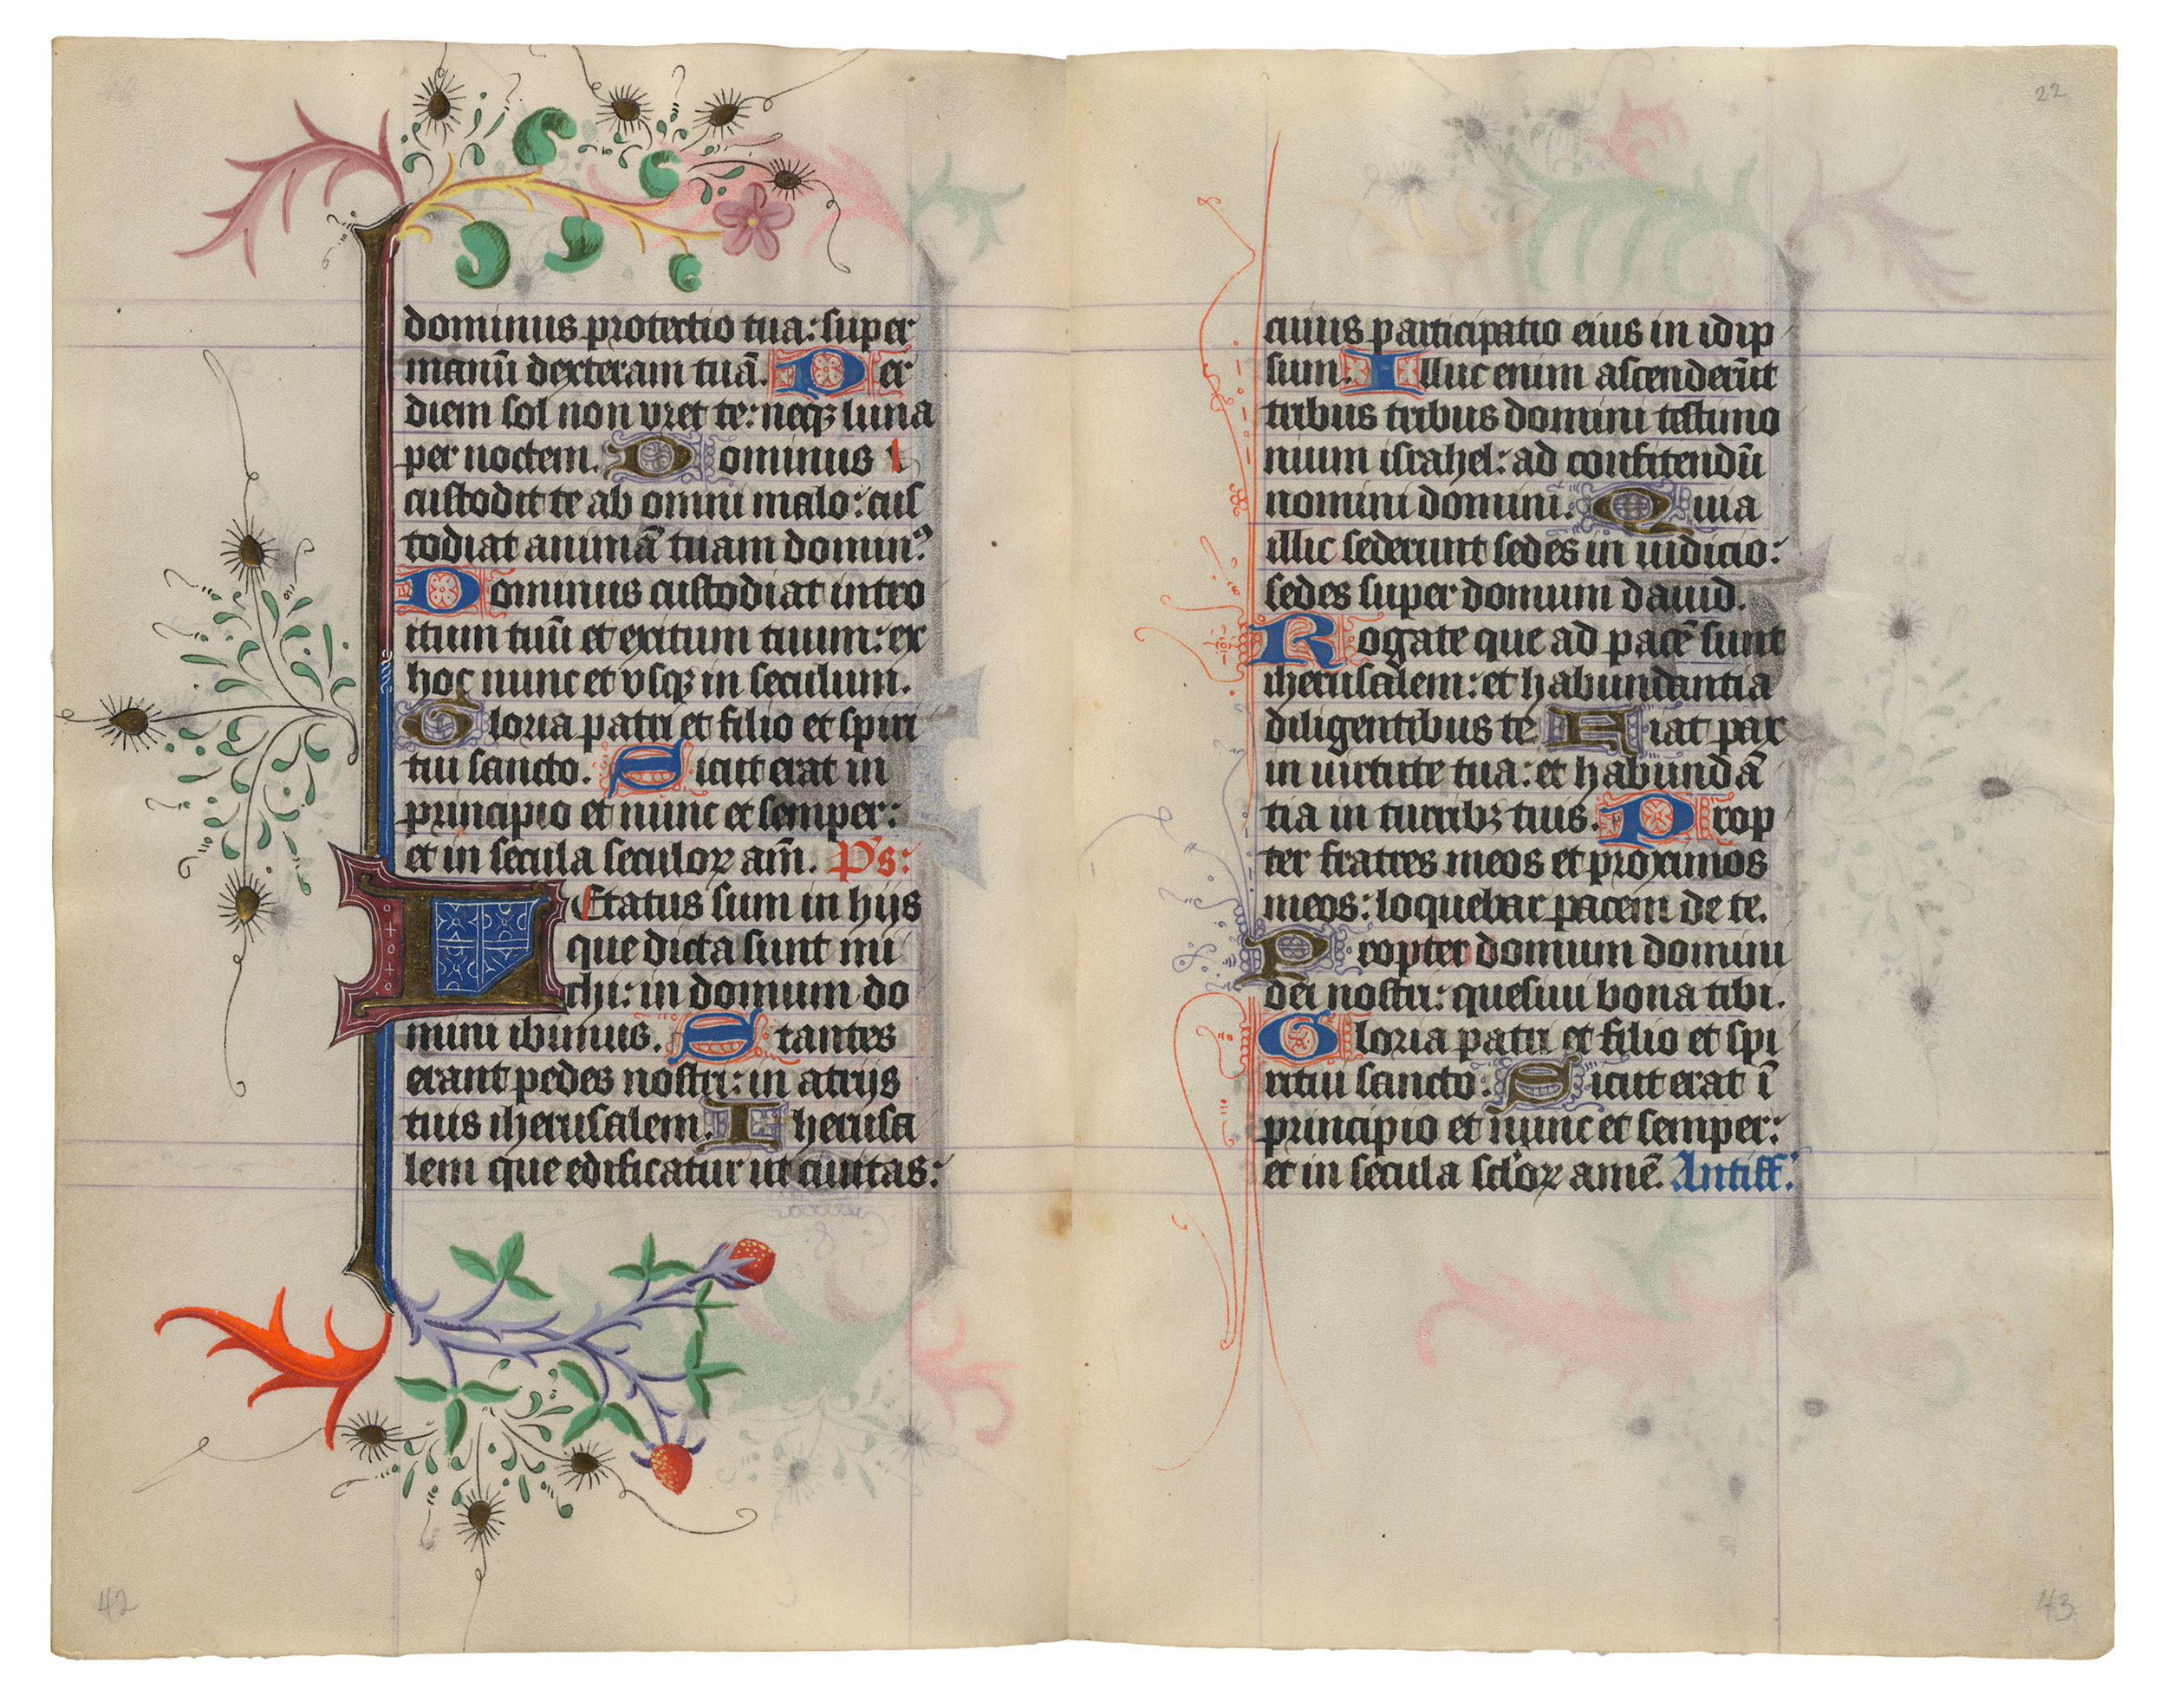 dominus protectio tua: super
manū dexteram tuā. Per
diem sol non vret te: neqꝫ luna
per noctem. Dominus
custodit te ab omni malo: cus
todiat animā tuam dominꝰ
Dominus custodiat intro
itum tuū et exitum tuum: ex
hoc nunc et vsqꝫ in seculum.
Gloria patri et filio et spiri
tui sancto. Sicut erat in
principio et nunc et semper:
et in secula seculoꝝ am̄. Ps:
Letatus sum in hijs
que dicta sunt mi
chi: in domum do
mini ibimus. Stantes
erant pedes nostri: in atrijs
tuis iherusalem. Iherusa
lem que edificatur ut ciuitas:
42
22
cuius participatio eius in idip
sum. Illuc enim ascenderūt
tribus tribus domini testimo
nium israhel: ad confitendū
nomini domini. Quia
illic sederunt sedes in iudicio:
sedes super domum dauid.
Rogate que ad pacē sunt
iherusalem: et habundantia
diligentibus te Fiat pax
in uirtute tua: et habundā
tia in turribꝫ tuis. Prop
ter fratres meos et proximos
meos: loquebar pacem de te.
Propter domum domini
dei nostri: quesiui bona tibi.
Gloria patri et filio et spi
ritui sancto: Sicut erat ī
principio et nunc et semper:
et in secula sc̄loꝝ amē. Antiff:
43